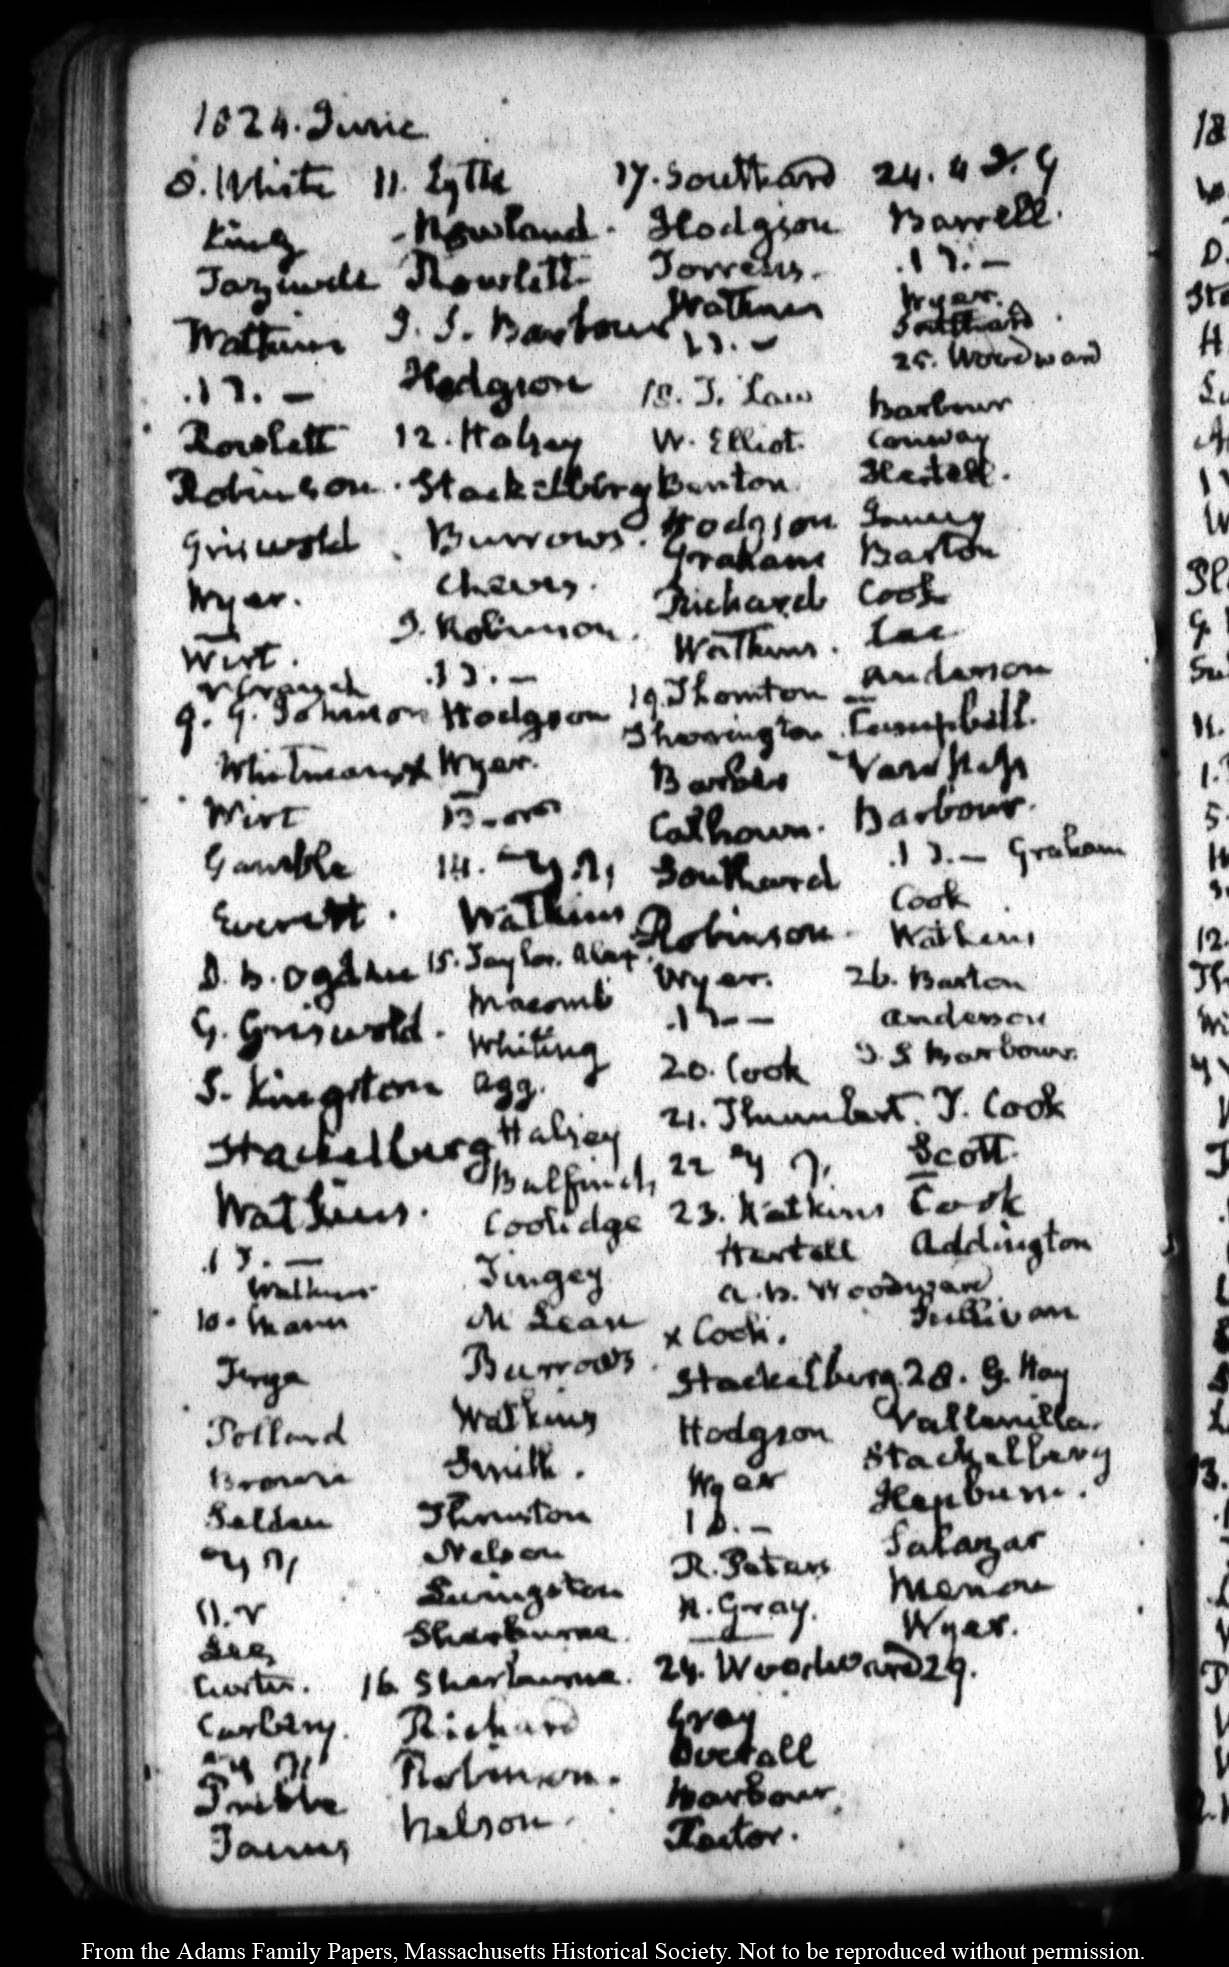 1824. June
8. White
King
Tazewell
Watkins
.17. –
Rowlett
Robinson.
Griswold
Wyer.
Wirt.
9. G. Johnson
Whitman
Wirt
Gamble
Everett.
D. B. Ogden
G. Griswold.
S. Kingston
Stackelberg
Watkins.
.17. –
Watkins
10. Mann
Pollard
Brown
Selden
11.
Lee
Curtis.
Carbery.
Preble
11. Lytle
Rowland.
Rowlett
J. S. Barbour
Hodgson
12. Halsey
Stackelberg
Burrows.
Cheves.
J. Robinson.
.17. –
Hodgson
Wyer.
Brown
14.
Watkins
15. Taylor. Alex.
Macomb
Whiting
Agg.
Halsey
Bulfinch
Coolidge
Tingey
McLean
Burrows.
Watkins
Smith.
Thruston
Nelson
Livingston
Sherburne.
16. Sherburne.
Richard
Robinson.
Nelson.
17. Southard
Hodgson
Torrens.
Watkins
17. –
18. T. Law
W. Elliot.
Benton
Hodgson
Graham
Richard
Watkins.
19. Thornton
Thorington
Barber
Calhoun.
Southard
Robinson.
Wyer.
.17 – –
20. Cook
21. Thumbert.
22
23. Watkins
Hertell
A. B. Woodward
x Cook.
Stackelberg
Hodgson
Wyer
18. –
R. Peters
H. Gray.
24. Woodward
Gray
Overall
Barbour
Rector.
24.
Barrell.
.17. –
Wyer.
Southard.
25. Woodward
Barbour
Conway
Hertell.
Barton
Cook
Lee
Anderson
Campbell.
Van Ness
Barbour.
.17. – Graham
Cook
Watkins
26. Barton
Anderson
J S Barbour.
T. Cook
Scott.
Cook
Addington
Sullivan
28. G. Hay
Vallenilla.
Stackelberg
Hepburn.
Salazar
Menou
Wyer.
29.
From the Adams Family Papers, Massachusetts Historical Society. Not to be reproduced without permission.